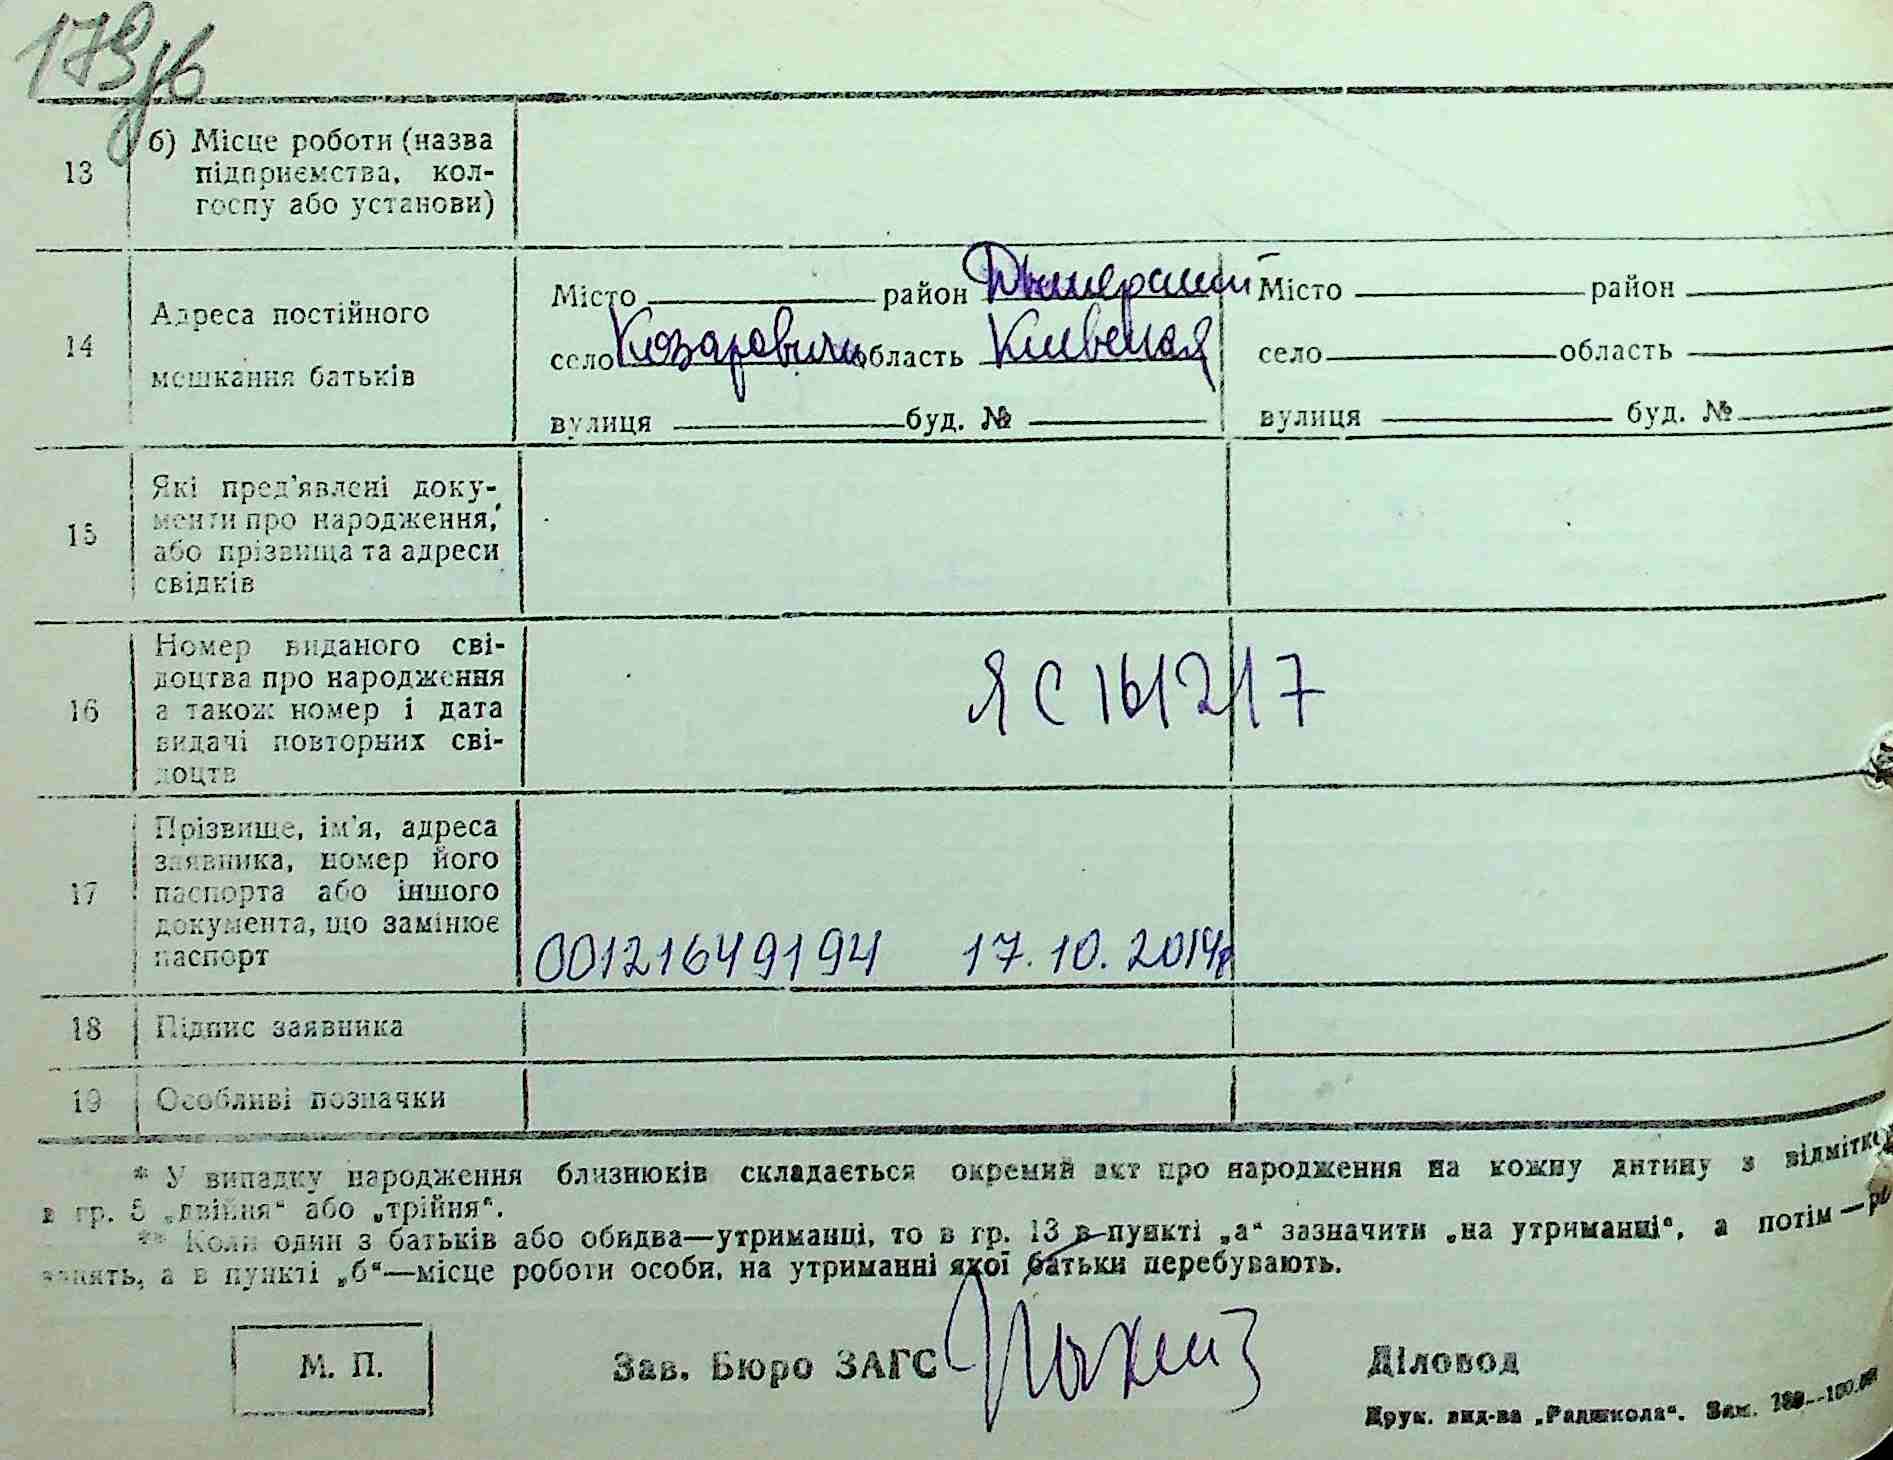 179зв
13 б) Місце роботи (назва
підприємства, кол-
госпу або установи)
14 Адреса постійного
мешкання батьків
Місто район Дымерский
село Козаровичи область Киевская
вулиця буд. №
Місто район
село область
вулиця буд. №
15 Які пред'явлені доку-
менти про народження,
або прізвища та адреси
свідків
16 Номер виданого сві-
доцтва про народження
а також номер і дата
видачі повторних сві-
доцтв
ЯС 161217
17 Прізвище, ім'я, адреса
заявника, номер його
паспорта або іншого
документа, що замінює
паспорт
00121649194 17.10.2014р
18 Підпис заявника
19 Особливі позначки
* У випадку народження близнюків складається окремий акт про народження на кожну дитину з відмітко
в гр. 5 „двійня“ або „трійня“.
** Коли один з батьків або обидва—утриманці, то в гр. 13 в пункті „а“ зазначити „на утриманці“, а потім—
занять, а в пункті „б“—місце роботи особи, на утриманні якої батьки перебувають.
М. П.
Зав. Бюро ЗАГС
Діловод
Друк. вид-ва „Радшкола“. Зам.